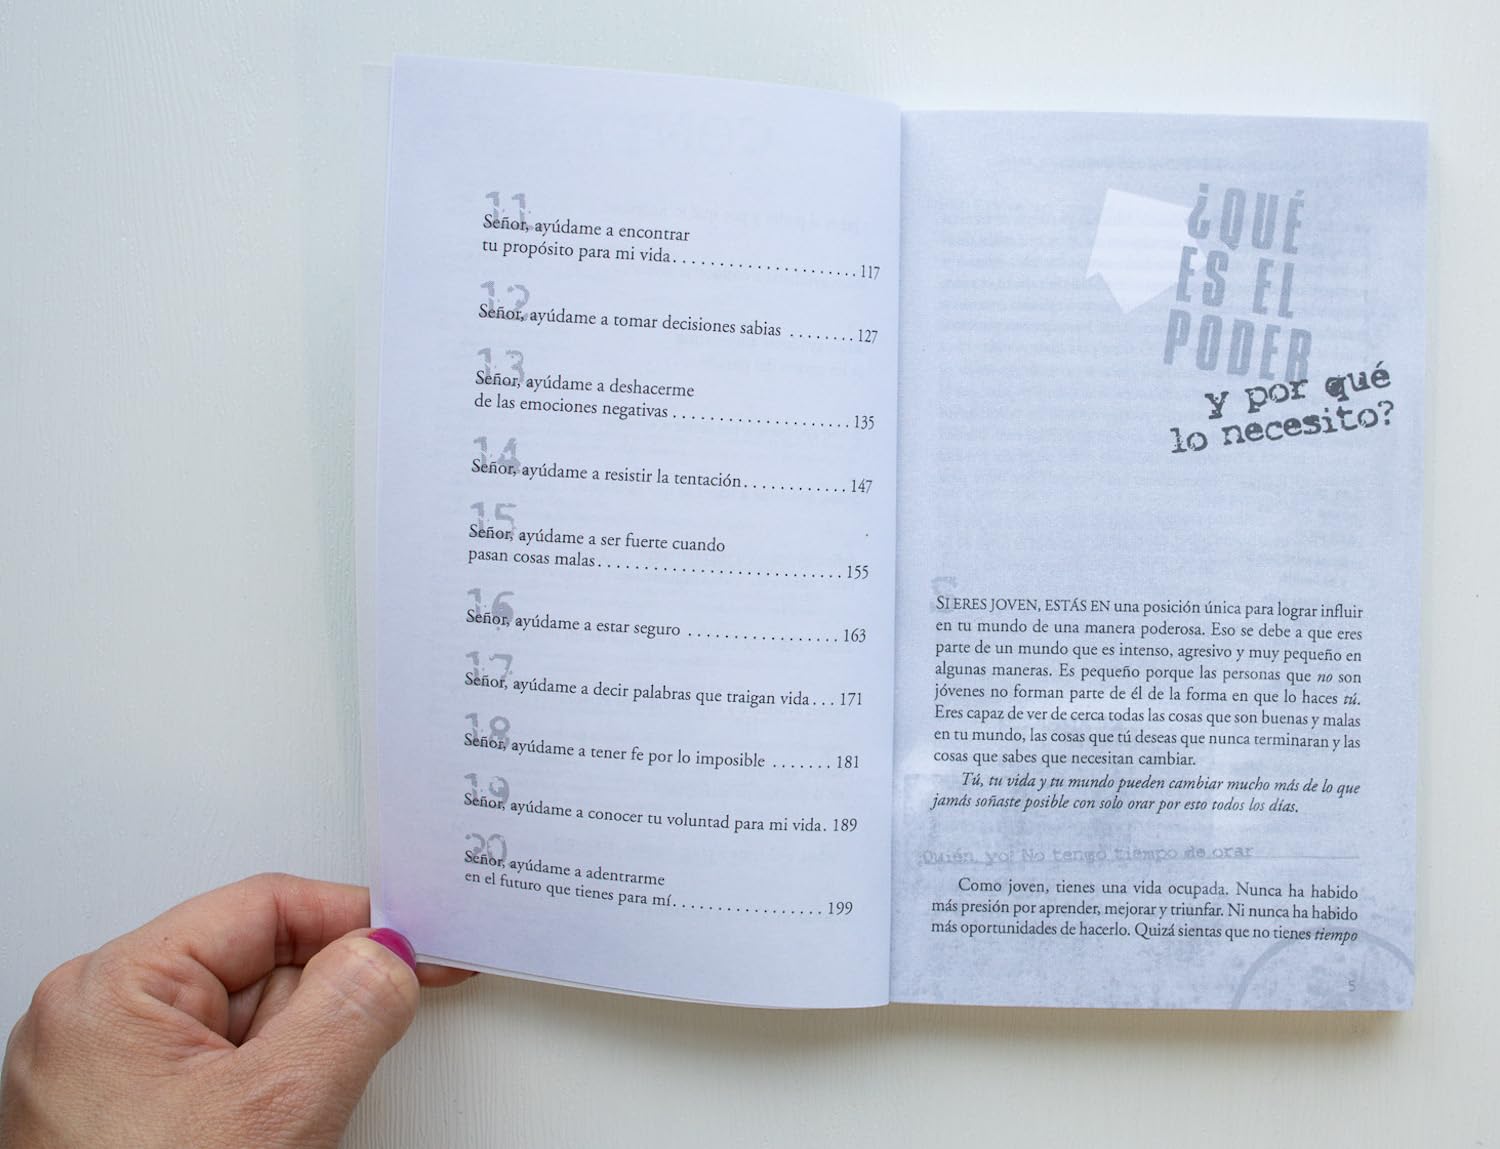 11
Señor, ayúdame a encontrar
tu propósito para mi vida. . . . . . . . . . . . . . . . . . . . . . 117
12
Señor, ayúdame a tomar decisiones sabias . . . . . . . . 127
13
Señor, ayúdame a deshacerme
de las emociones negativas . . . . . . . . . . . . . . . . . . . . . 135
14
Señor, ayúdame a resistir la tentación. . . . . . . . . . . . 147
15
Señor, ayúdame a ser fuerte cuando
pasan cosas malas. . . . . . . . . . . . . . . . . . . . . . . . . . . . 155
16
Señor, ayúdame a estar seguro . . . . . . . . . . . . . . . . . 163
17
Señor, ayúdame a decir palabras que traigan vida. . . 171
18
Señor, ayúdame a tener fe por lo imposible . . . . . . . 181
19
Señor, ayúdame a conocer tu voluntad para mi vida. 189
20
Señor, ayúdame a adentrarme
en el futuro que tienes para mí. . . . . . . . . . . . . . . . . 199
¿QUÉ
ES EL
PODER
y por qué
lo necesito?
SI ERES JOVEN, ESTÁS EN una posición única para lograr influir
en tu mundo de una manera poderosa. Eso se debe a que eres
parte de un mundo que es intenso, agresivo y muy pequeño en
algunas maneras. Es pequeño porque las personas que no son
jóvenes no forman parte de él de la forma en que lo haces tú.
Eres capaz de ver de cerca todas las cosas que son buenas y malas
en tu mundo, las cosas que tú deseas que nunca terminaran y las
cosas que sabes que necesitan cambiar.
Tú, tu vida y tu mundo pueden cambiar mucho más de lo que
jamás soñaste posible con solo orar por esto todos los días.
¿Quién, yo? No tengo tiempo de orar
Como joven, tienes una vida ocupada. Nunca ha habido
más presión por aprender, mejorar y triunfar. Ni nunca ha habido
más oportunidades de hacerlo. Quizá sientas que no tienes tiempo
5